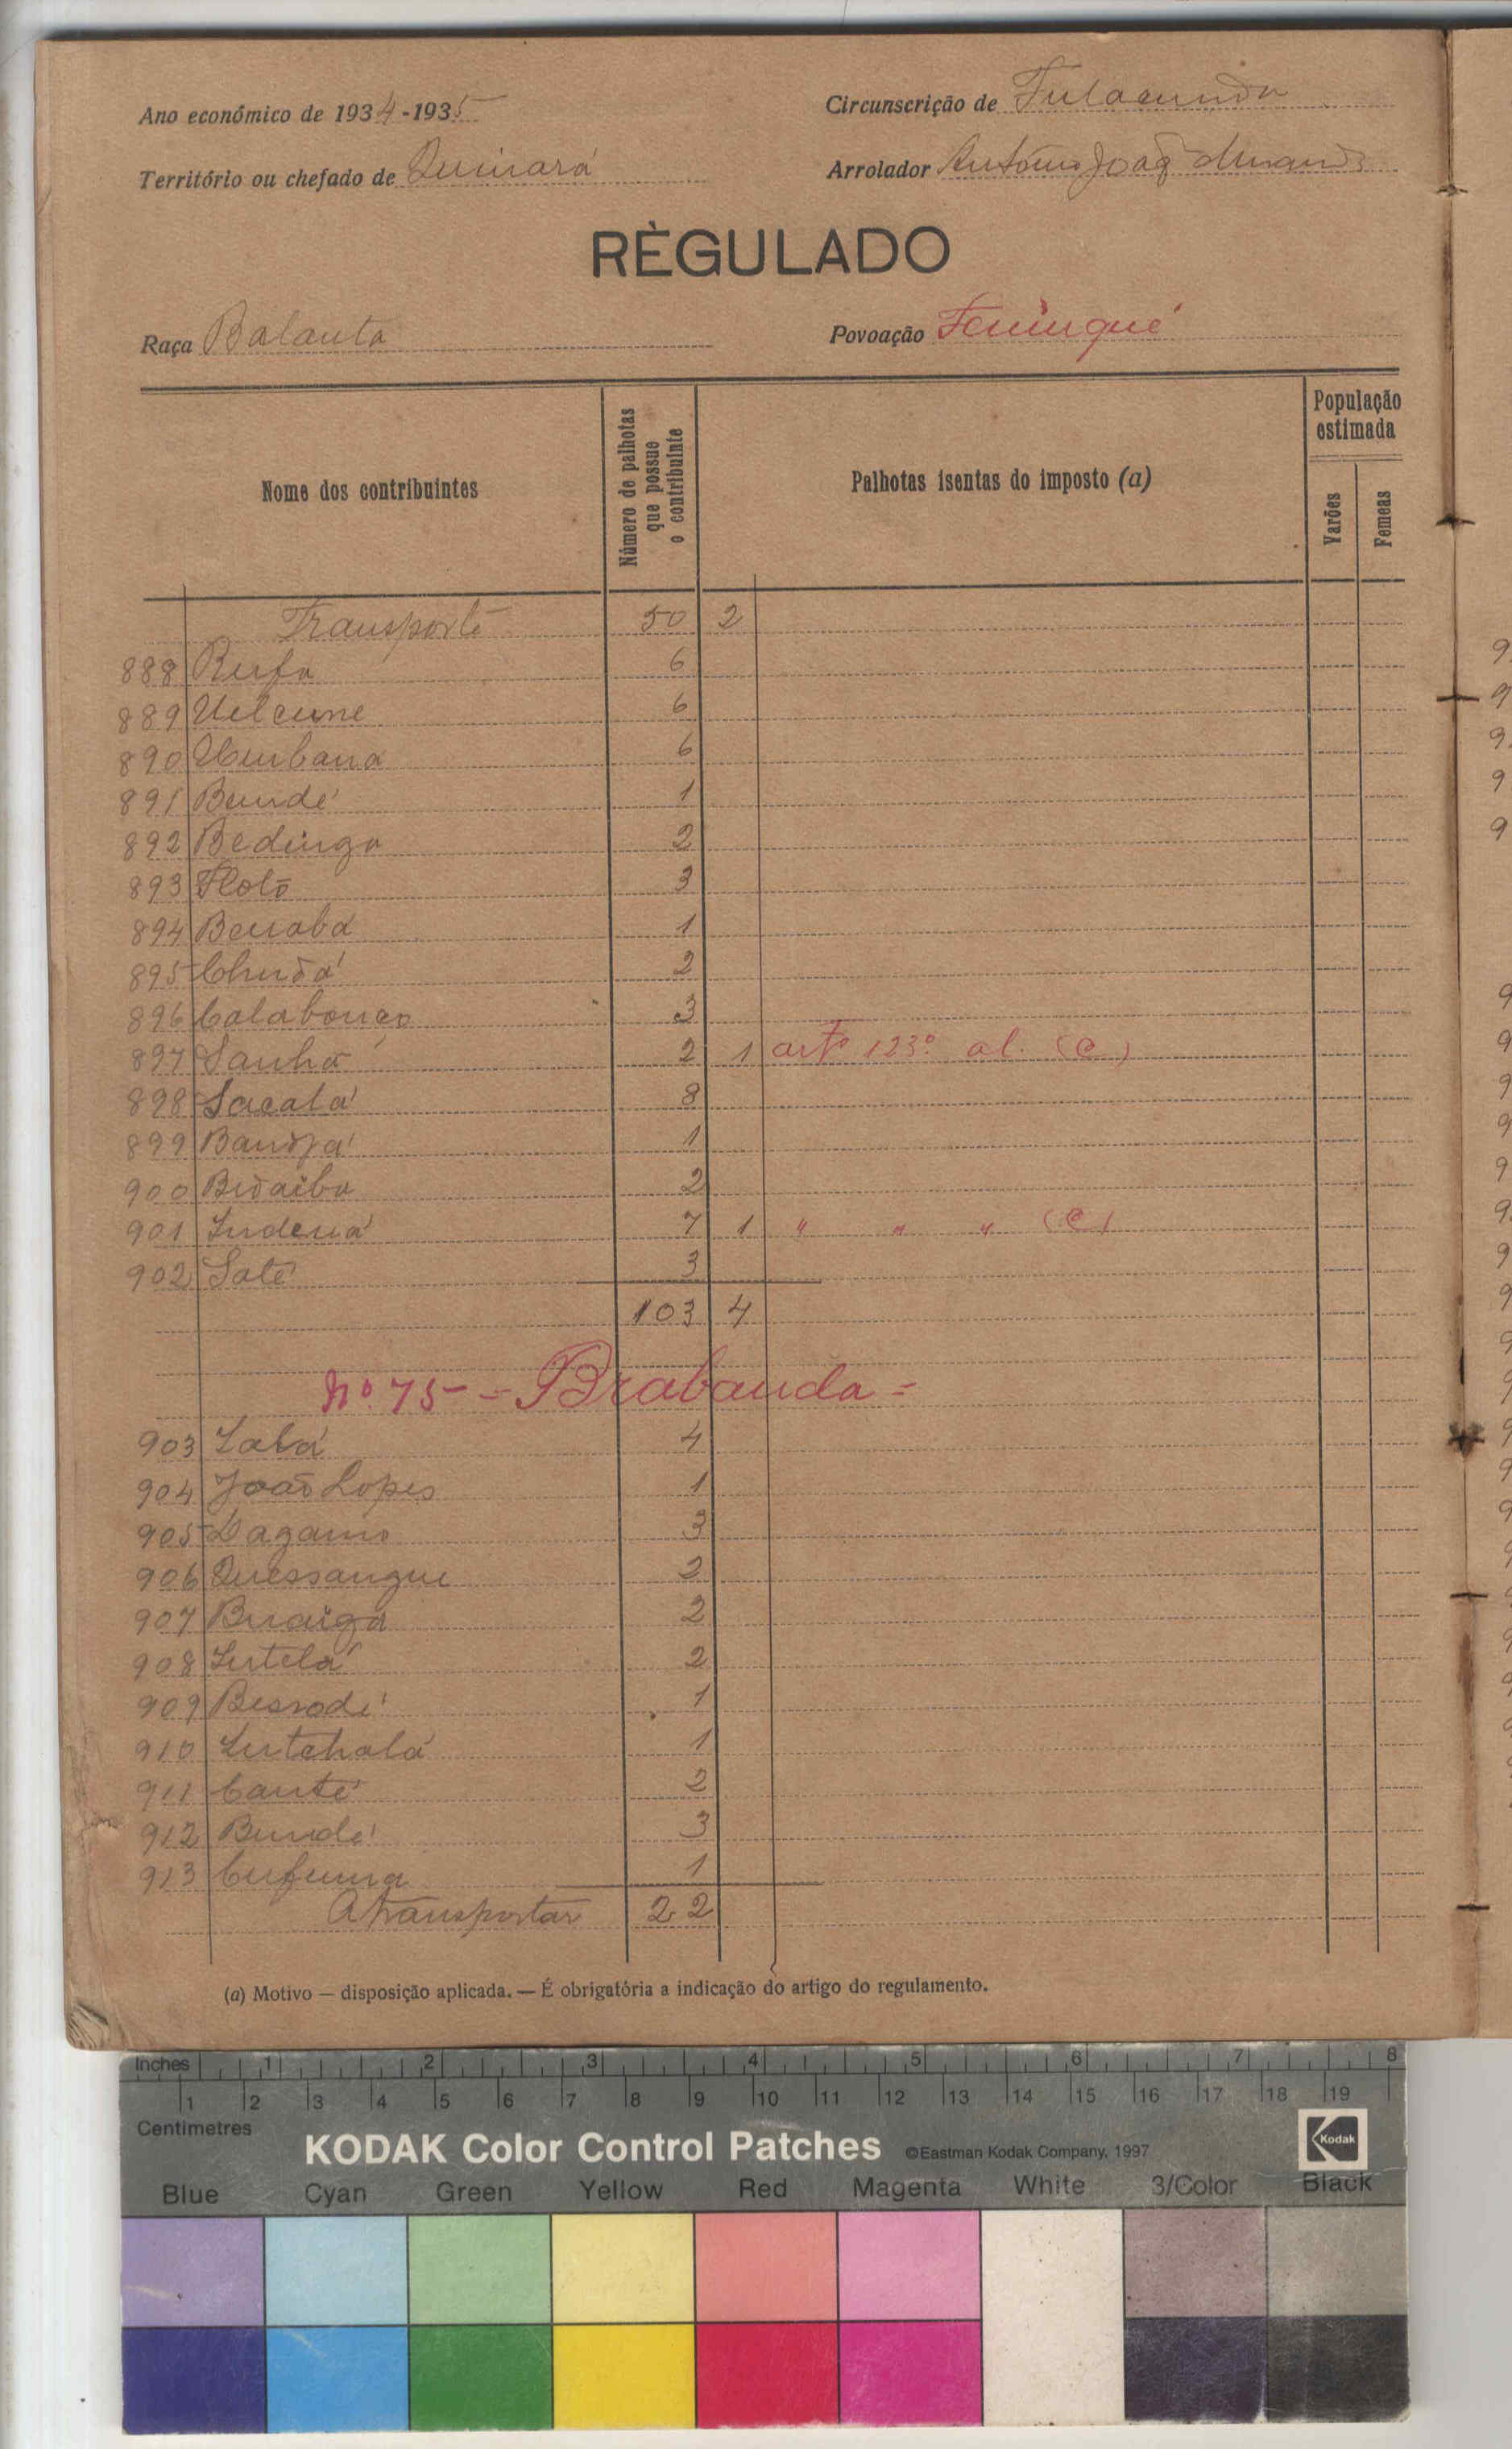 Ano económico de 1934-1935
Circunscrição de Fulacunda
Território ou chefado de Quinará
Arrolador António João
RÈGULADO
Raça Balanta
Povoação
Nome dos contribuintes
Número de palhotas que possue o contribuinte
Palhotas isentas do imposto (a)
População estimada
Varões
Femeas
Transporte 50 2
888 Rufa 6
889 Uilcune 6
890 6
891 Bundé 1
892 Bedinga 2
893 3
894 1
895 Chudá 2
896 Calabouço 3
897 Sanhá 2 1 artº 123º al. (c)
898 Sacalá 8
899 1
900 2
901 7 1 " " " (c)
902 Saté 3
103 4
Nº 75 - = Brabanda =
903 4
904 João Lopes 1
905 3
906 Quessangue 2
907 2
908 2
909 1
910 1
911 Canté 2
912 Bundé 3
913 1
A transportar 22
(a) Motivo — disposição aplicada. — É obrigatória a indicação do artigo do regulamento.
Inches 1 2 3 4 5 6 7 8
1 2 3 4 5 6 7 8 9 10 11 12 13 14 15 16 17 18 19
Centimetres
KODAK Color Control Patches ©Eastman Kodak Company, 1997 Kodak
Blue Cyan Green Yellow Red Magenta White 3/Color Black